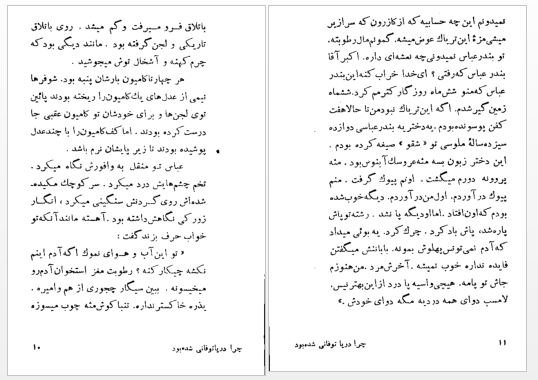 باتلاق فرو میرفت و گم میشد . روی باتلاق
تاریکی و لجن گرفته بود . مانند دیگی بود که
چرم کهنه و آشغال توش میجوشید .
هر چهارتا کامیون بارشان پنبه بود. شوفرها
نیمی از عدل‌های یك کامیون را ریخته بودند پائین
توی لجن‌ها و برای خودشان تو کامیون عقبی جا
درست کرده بودند . اما کف کامیون را با چند عدل
پوشیده بودند تا زیر پایشان نرم باشد .
عباس تو منقل به وافورش نگاه میکرد .
تخم چشم‌هایش درد میکرد . سر کوچك مکیده
شده‌اش روی گردنش سنگینی میکرد ، انگار
زورکی نگاهش داشته بود . آهسته مانند آنکه تو
خواب حرف بزند گفت :
« تو این آب و هوای نموك اگه آدم اینم
نکشه چیکار کنه ؟ رطوبت مغز استخوان آدم رو
میخیسونه . ببین سیگار چجوری از هم وامیره .
یذره خاکستر نداره . تنباکوش مثه چوب میسوزه
چرا دریا توفانی شده بود ۱۰
نمیدونم این چه حسابیه که از کازرون که سرازیر
میشی مزهٔ این تریاك عوض میشه. گمونم مال رطوبته.
تو بندر عباس نمیدونی چه نشئه‌ای داره . اکبر آقا
بندر عباس که رفتی ؟ ای خدا خراب کنه این بندر
عباس که منو شش ماه روزگار کترمم کرد. ششماه
زمین گیر شدم. اگه این تریاك نبود من تا حالا هفت
کفن پوسونده بودم. یه دختر یه بندر عباسی دوازده
سیزده سالهٔ ملوسی تو « شقو » صیغه کرده بودم .
این دختر زبون بسه مثه عروسك آبنوس بود . مثه
پروونه دورم میگشت . اونم پیوك گرفت . منم
پیوك در آوردم. اول من در آوردم. دیگه خوب شده
بودم که اون افتاد . اما اودیگه پا نشد . رشته تو پاش
پاره شد، پاش باد کرد . چرك کرد. یه بوئی میداد
که آدم نمی‌تونس پهلوش بمونه. با باننش میگفتن
فایده نداره خوب نمیشه . آخرش مرد . من هنوزم
جاش تو پامه. هیچی واسیه پا درد از این بهتر نیس.
لامسب دوای همه دردیه مگه دوای خودش .»
چرا دریا توفانی شده بود ۱۱